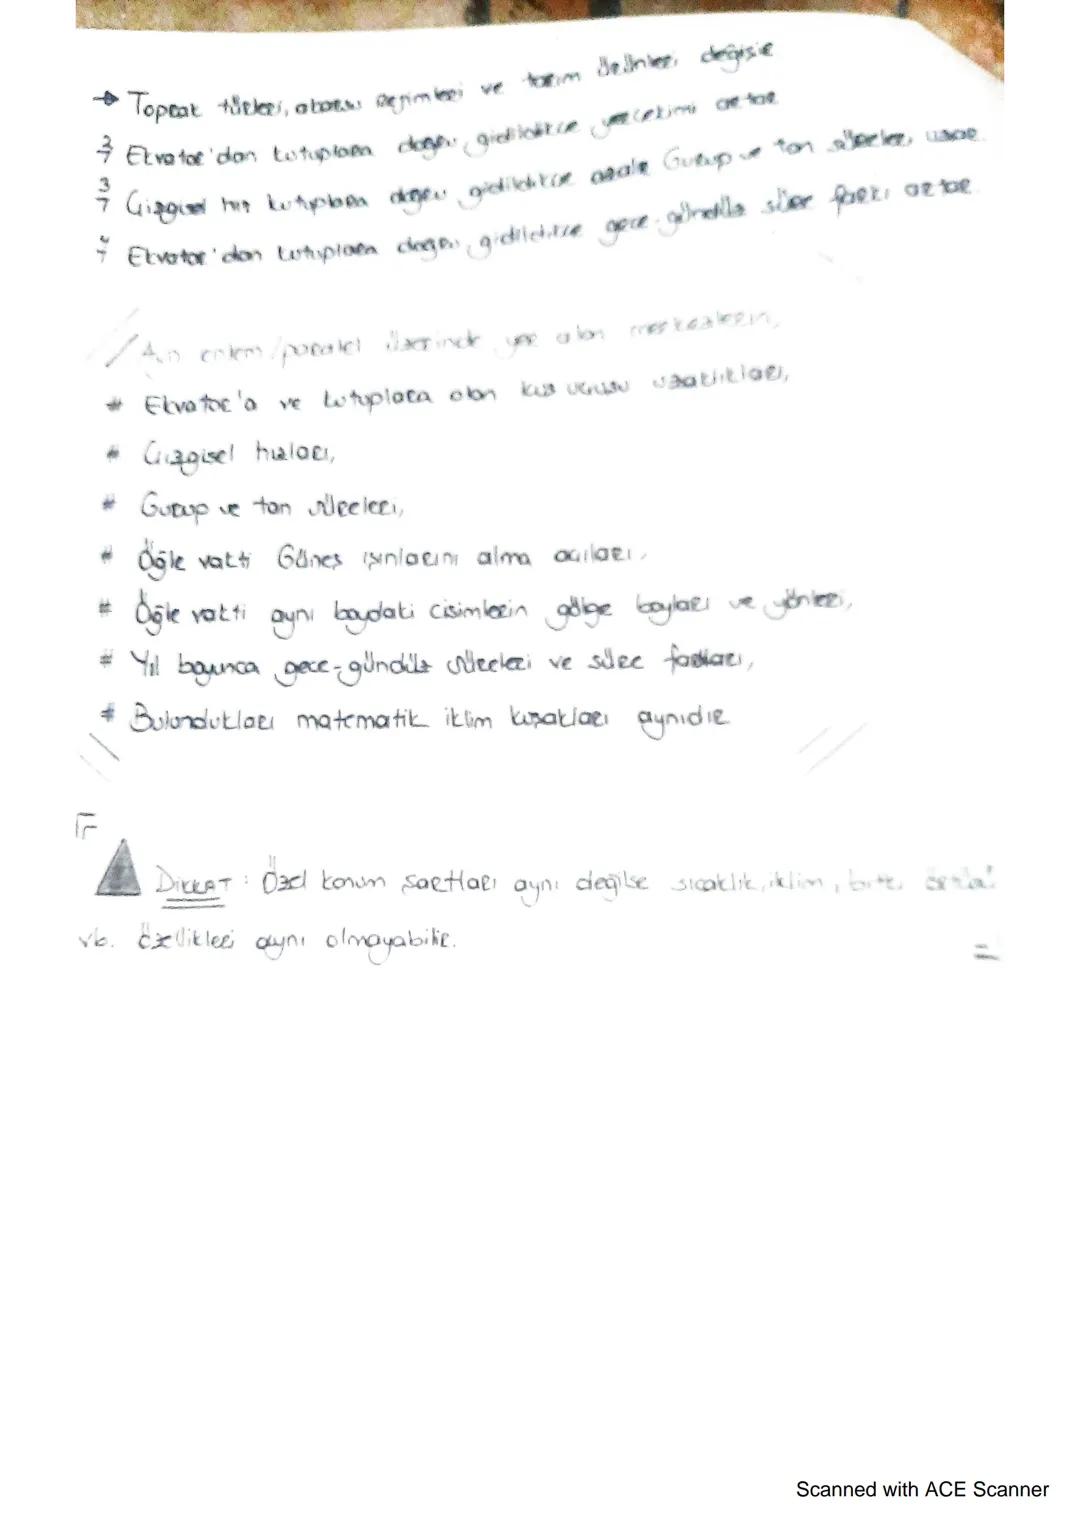 → Toprak türleri, akarsu rejimleri ve tarım ürünleri değişir
Ekvator'dan kutuplara doğru gidildikçe yerçekimi artar
Çizgisel hız kutuplara doğru gidildikçe azalır Gurup ve tan süreleri uzar.
Ekvator'dan kutuplara doğru gidildikçe gece-gündüz süre farkı artar.
Aynı enlem/paralel üzerinde yer alan merkezlerin,
# Ekvator'a ve kutuplara olan kuş uçuşu uzaklıkları,
# Çizgisel hızları,
# Gurup ve tan süreleri,
# Öğle vakti Güneş ışınlarını alma açıları,
# Öğle vakti aynı boydaki cisimlerin gölge boyları ve yönleri,
# Yıl boyunca gece-gündüz süreleri ve süre farkları,
# Bulundukları matematik iklim kuşakları aynıdır
DİKKAT: Özel konum şartları aynı değilse sıcaklık, iklim, bitki örtüsü
vb. özellikleri aynı olmayabilir.
Scanned with ACE Scanner